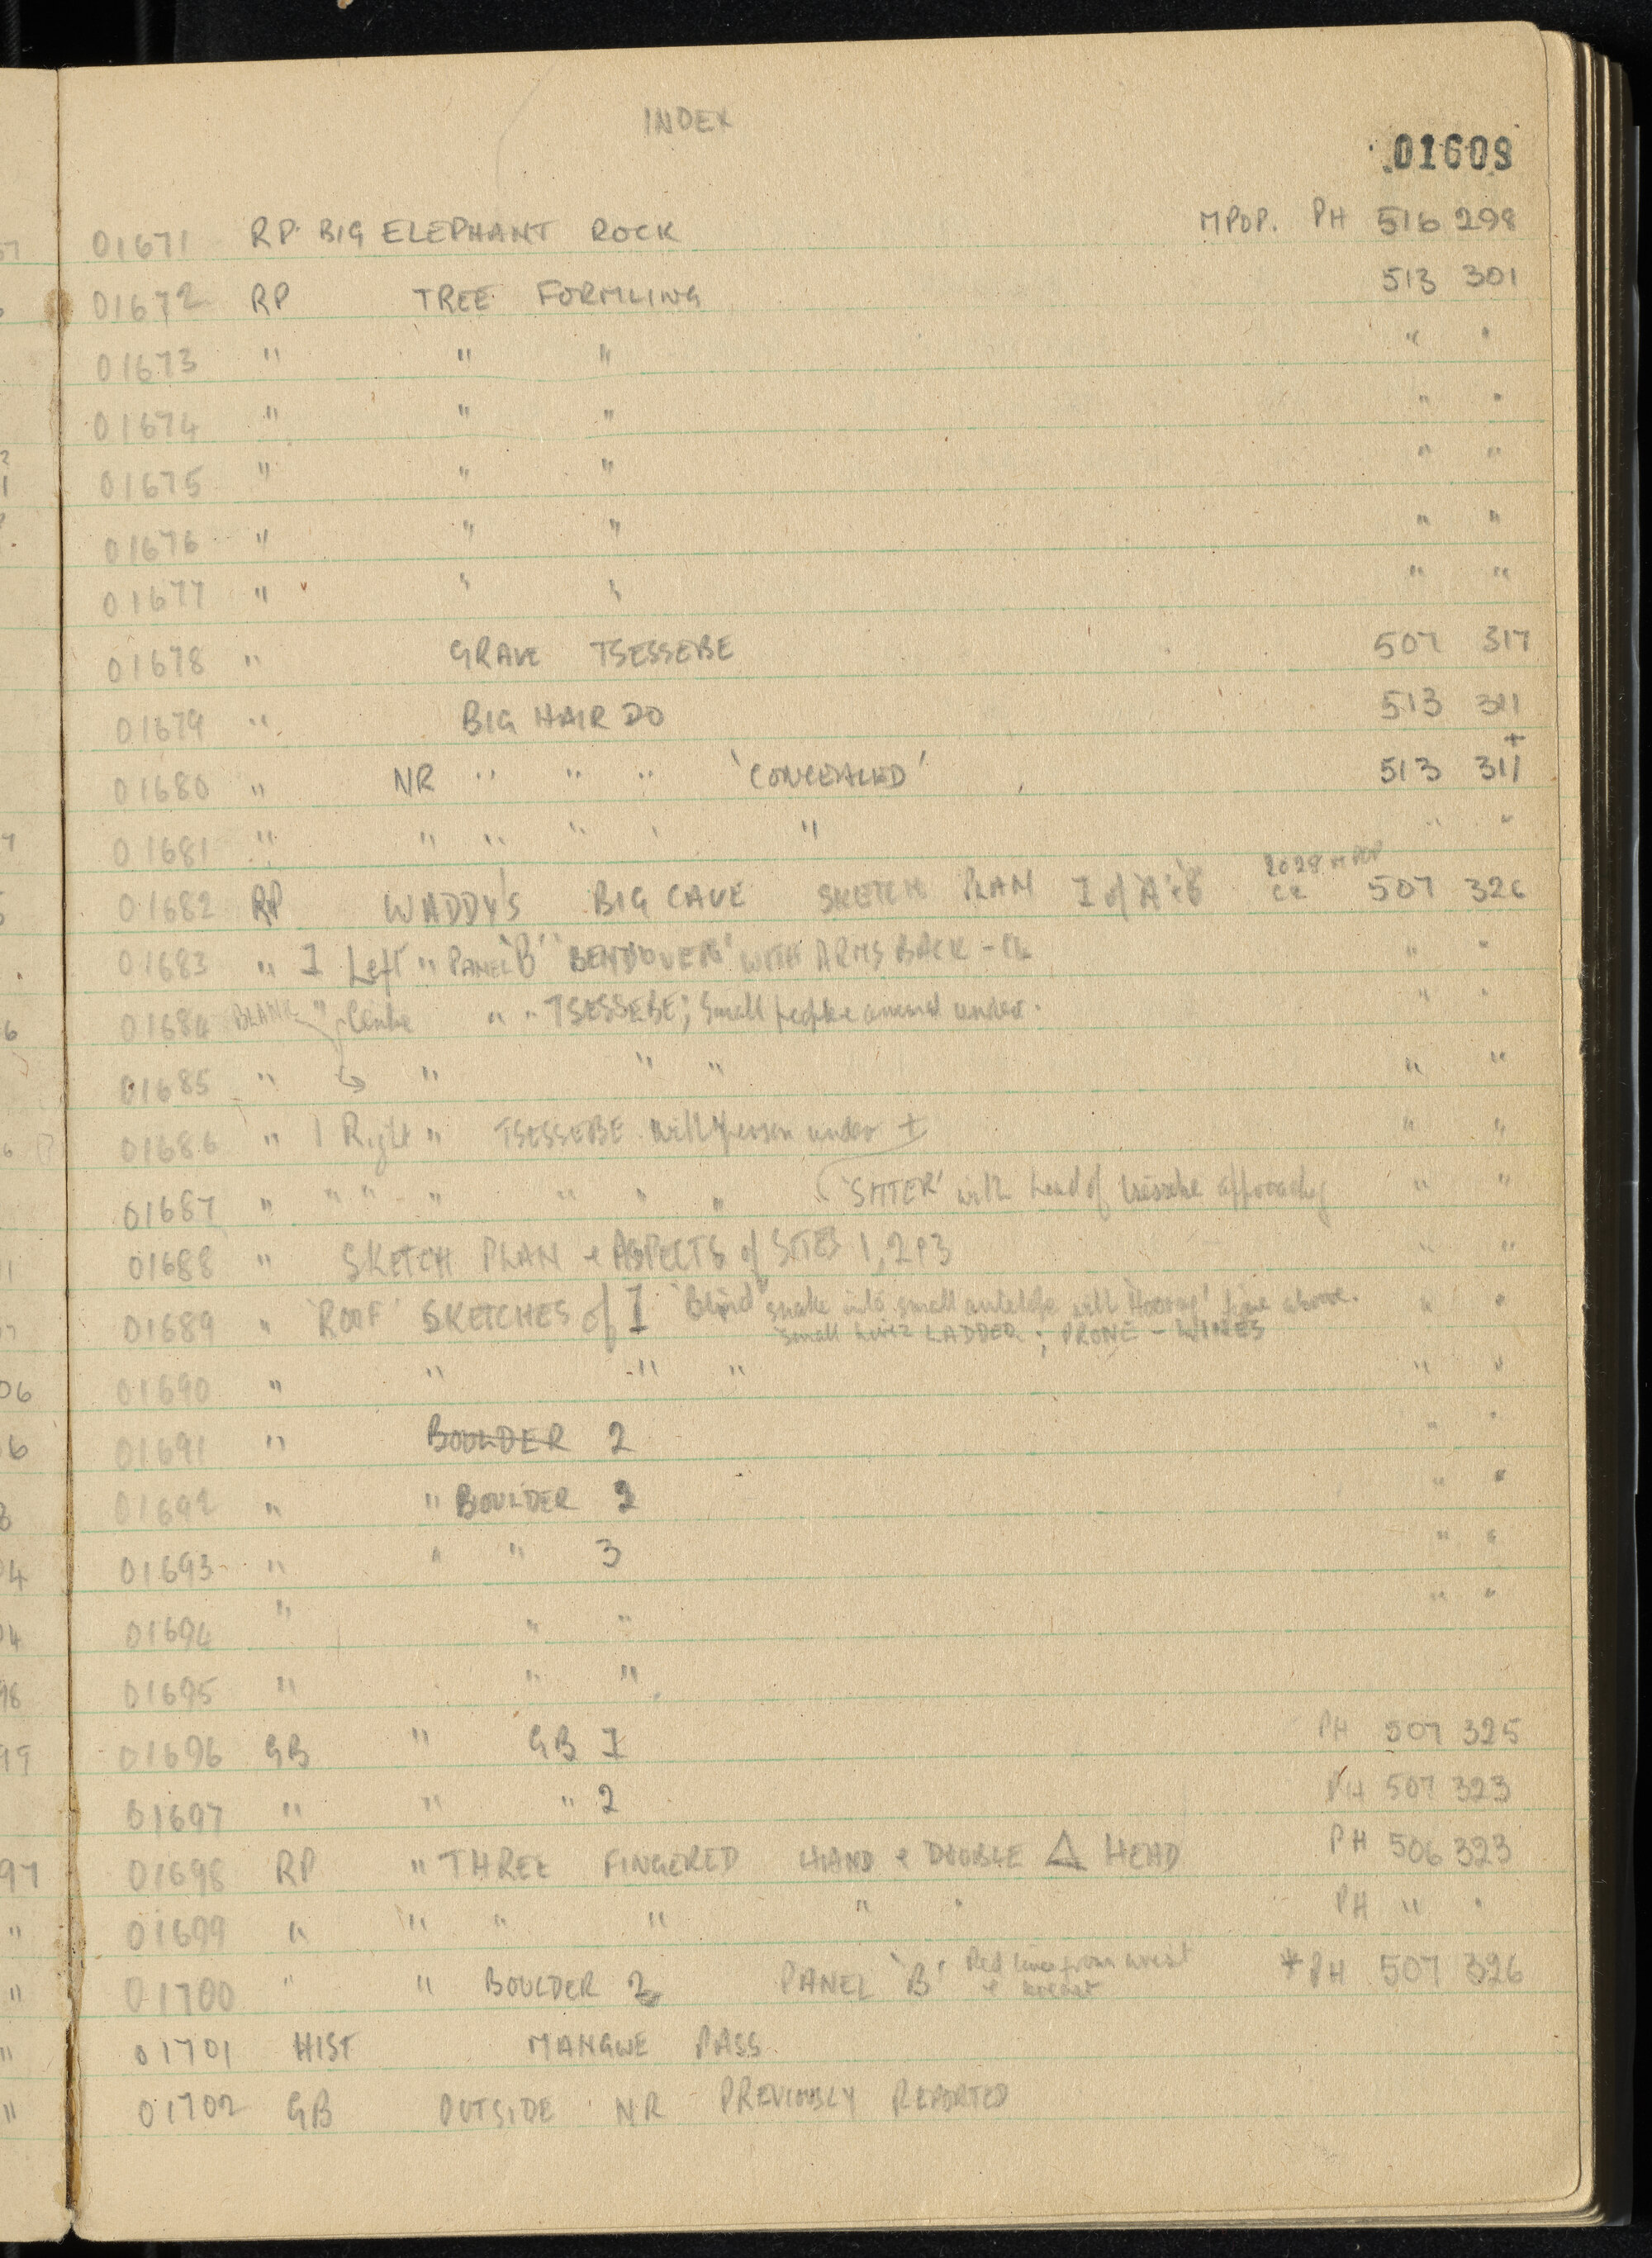 INDEX
01609
01671 RP. BIG ELEPHANT ROCK MPOP. PH 516 298
01672 RP TREE FORMLING 513 301
01673 " " " " "
01674 " " " " "
01675 " " " " "
01676 " " " " "
01677 " " " " "
01678 " GRAVE TSESSEBE 507 317
01679 " BIG HAIR DO 513 311
01680 " NR " " " 'CONCEALED' 513 311 +
01681 " " " " " " " "
01682 RP WADDY'S BIG CAVE SKETCH PLAN I of 'A' & 'B' 2028 507 326
01683 " I Left " PANEL 'B' 'BENDOVERS' WITH ARMS BACK " "
01684 BLANK " Centre " " TSESSEBE; small people around under. " "
01685 " " " " " "
01686 " I Right " TSESSEBE with person under + " "
01687 " " " " " " " 'SITTER' with head of tsessebe approaching " "
01688 " SKETCH PLAN & ASPECTS of SITES 1, 2 & 3 " "
01689 " 'ROOF' SKETCHES of I 'Blind' snake into small antelope with 'Hooray' figure above. " "
small LADDER; PRONE - WINES
01690 " " " " " "
01691 " BOULDER 2 " "
01692 " " BOULDER 2 " "
01693 " " " 3 " "
01694 " " " " "
01695 " " "
01696 GB " GB I PH 507 325
01697 " " " 2 PH 507 323
01698 RP " THREE FINGERED HAND & DOUBLE △ HEAD PH 506 323
01699 " " " " " " PH " "
01700 " " BOULDER 2 PANEL 'B' Red lines from wrist * PH 507 326
&
01701 HIST MANGWE PASS
01702 GB OUTSIDE NR PREVIOUSLY REPORTED